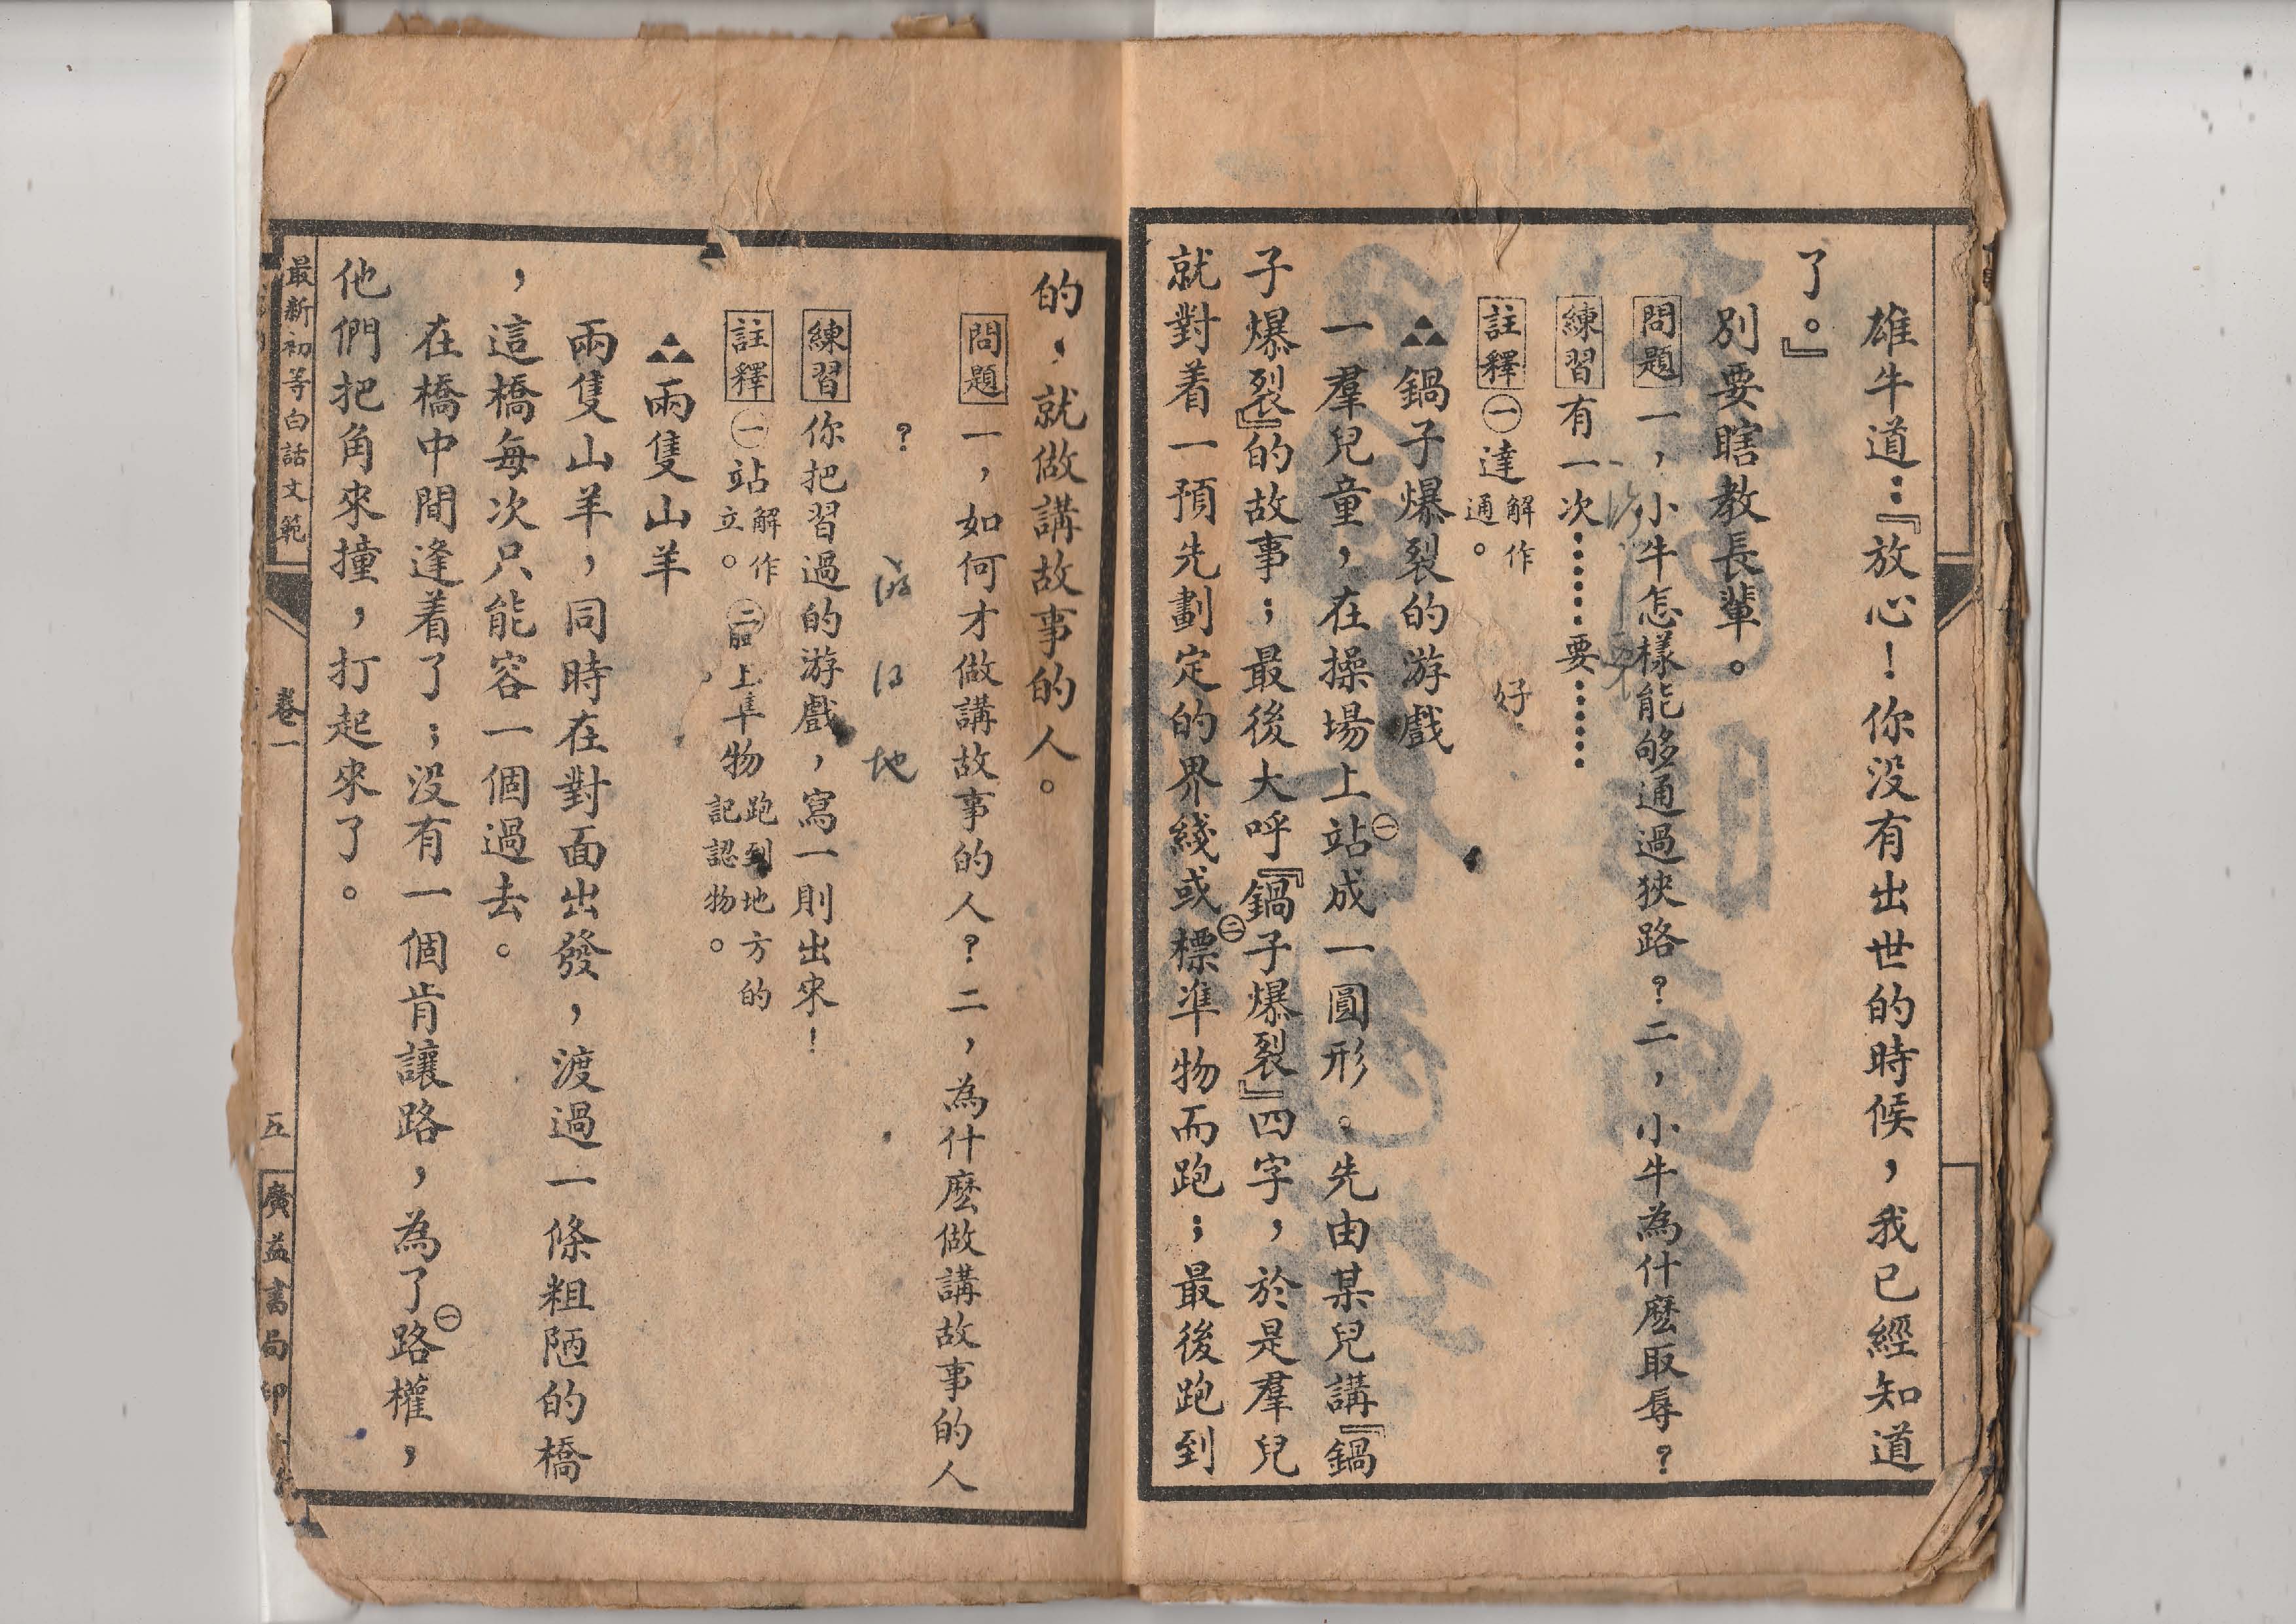 雄牛道：『放心！你没有出世的時候，我已經知道
了。』
別要瞎教長輩。
問題 一，小牛怎樣能够通過狹路？二，小牛為什麽取辱？
練習 有一次⋯⋯要⋯⋯
註釋 ㊀達 解作通。
好
鍋子爆裂的游戲
一羣兒童，在操場上㊀站成一圓形。先由某兒講『鍋
子爆裂』的故事；最後大呼『鍋子爆裂』四字，於是羣兒
就對着一預先劃定的界綫或㊁標準物而跑；最後跑到
的，就做講故事的人。
問題 一，如何才做講故事的人？二，為什麽做講故事的人
？
地
練習 你把習過的游戲，寫一則出來！
註釋 ㊀站 解作立。 ㊁ 物 跑到地方的記認物。
兩隻山羊
兩隻山羊，同時在對面出發，渡過一條粗陋的橋
，這橋每次只能容一個過去。
在橋中間逢着了；没有一個肯讓路，為了㊀路權，
他們把角來撞，打起來了。
最新初等白話文範 卷一 五 廣益書局印